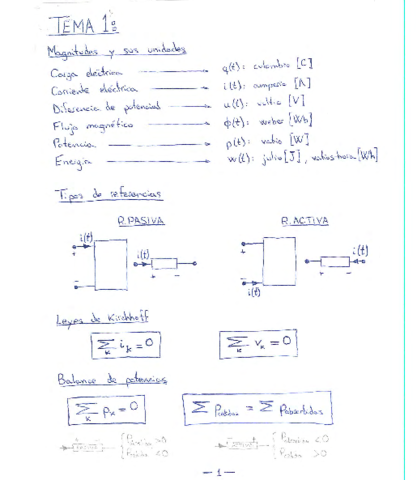 TEMA 1º
Magnitudes y sus unidades
Carga eléctrica → q(t): culombio [C]
Corriente eléctrica → i(t): amperio [A]
Diferencia de potencial → u(t): voltio [V]
Flujo magnético → ϕ(t): weber [Wb]
Potencia → p(t): vatio [W]
Energía → w(t): julio [J], vatios hora [Wh]
Tipos de referencias
R.PASIVA R.ACTIVA
i(t) i(t) i(t)
+ + - + + -
- -
i(t)
Leyes de Kirchhoff
∑ₖ iₖ = 0 ∑ₖ vₖ = 0
Balance de potencias
∑ₖ pₖ = 0 ∑ = ∑ Pabsorbidas
>0 <0
<0 >0
— 1 —